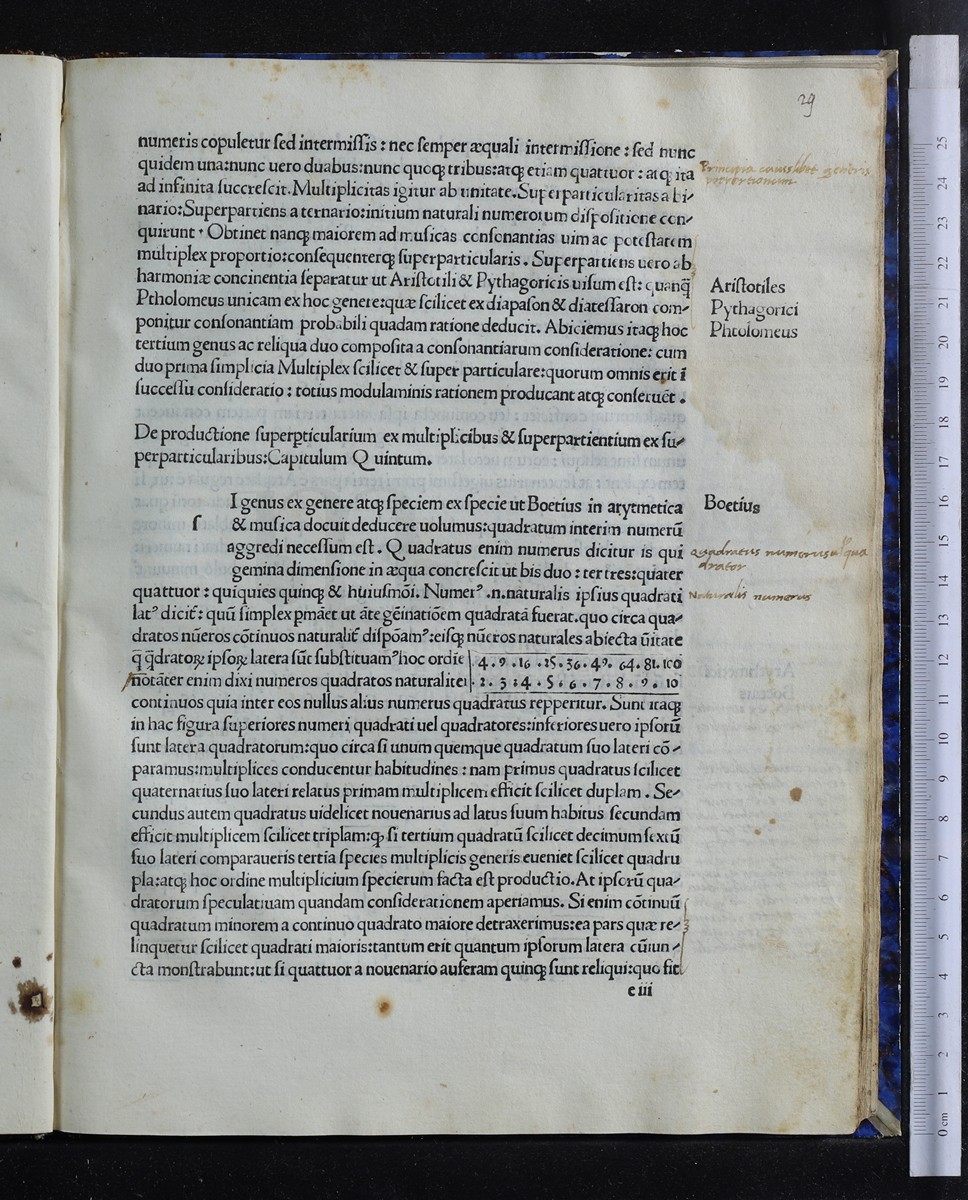 29
numeris copuletur ſed intermiſſis : nec ſemper æquali intermiſſione : ſed nunc
quidem una:nunc uero duabus:nunc quoqꝫ tribus:atqꝫ etiam quattuor : atqꝫ ita
ad infinita ſuccreſcit. Multiplicitas igitur ab unitate. Superparticularitas a bi⸗
nario:Superpartiens a ternario:initium naturali numerorum diſpoſitione con⸗
quirunt · Obtinet nanqꝫ maiorem ad muſicas conſonantias uim ac poteſtatem
multiplex proportio:conſequenterqꝫ ſuperparticularis . Superpartiens uero ab
harmoniæ concinentia ſeparatur ut Ariſtotili & Pythagoricis uiſum eſt: quanq̄
Ptholomeus unicam ex hoc genere:quæ ſcilicet ex diapaſon & diateſſaron com⸗
ponitur conſonantiam probabili quadam ratione deducit. Abiciemus itaqꝫ hoc
tertium genus ac reliqua duo compoſita a conſonantiarum conſideratione: cum
duo prima ſimplicia Multiplex ſcilicet & ſuper particulare:quorum omnis erit ī
ſucceſſu conſideratio : totius modulaminis rationem producant atqꝫ conſeruēt .
Principia cuiuslibet generis
proportionum
Ariſtotiles
Pythagorici
Phtolomeus
De productione ſuperpticularium ex multiplicibus & ſuperpartientium ex ſu⸗
perparticularibus:Capitulum Quintum.
ſ
I genus ex genere atqꝫ ſpeciem ex ſpecie ut Boetius in arytmetica
& muſica docuit deducere uolumus:quadratum interim numerū
aggredi neceſſum eſt . Quadratus enim numerus dicitur is qui
gemina dimenſione in æqua concreſcit ut bis duo : ter tres:quater
quattuor : quiquies quinqꝫ & huiuſmōi. Numerꝰ .n.naturalis ipſius quadrati
latꝰ dicit᷑: quū ſimplex pmāet ut āte gēinatiōem quadratā fuerat.quo circa qua⸗
dratos nūeros cōtinuos naturalit᷑ diſpōamꝰ:eiſqꝫ nūeros naturales abiecta ūitate
q̄ q̄dratoꝝ ipſoꝝ latera ſūt ſubſtituamꝰ hoc ordīe 4 . 9 .16 .25 .36 . 49. 64 . 81. 100
notāter enim dixi numeros quadratos naturaliter . 2 . 3 : 4 . 5 . 6 . 7 . 8 . 9 . 10
continuos quia inter eos nullus alius numerus quadratus repperitur. Sunt itaqꝫ
in hac figura ſuperiores numeri quadrati uel quadratores:inferiores uero ipſorū
ſunt latera quadratorum:quo circa ſi unum quemque quadratum ſuo lateri cō⸗
paramus:multiplices conducentur habitudines : nam primus quadratus ſcilicet
quaternarius ſuo lateri relatus primam multiplicem efficit ſcilicet duplam . Se⸗
cundus autem quadratus uidelicet nouenarius ad latus ſuum habitus ſecundam
efficit multiplicem ſcilicet triplam:qꝫ ſi tertium quadratū ſcilicet decimum ſextū
ſuo lateri comparaueris tertia ſpecies multiplicis generis eueniet ſcilicet quadru
pla:atqꝫ hoc ordine multiplicium ſpecierum facta eſt productio. At ipſorū qua⸗
dratorum ſpeculatiuam quandam conſiderationem aperiamus. Si enim cōtinuū
quadratum minorem a continuo quadrato maiore detraxerimus:ea pars quæ re⸗
linquetur ſcilicet quadrati maioris:tantum erit quantum ipſorum latera cūiun⸗
cta monſtrabunt:ut ſi quattuor a nouenario auferam quinqꝫ ſunt reliqui:quo fit
e iii
Boetius
Quadratus numerus
quadrator
Naturalis numerus